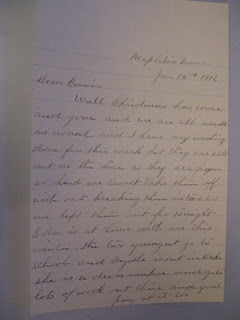 Mapleton
Jan 13th 1902
Dear Cousin
Well Christmas has come
and gone and we are all well
as usual and I have my washing
done for this week but they are still
out on the line as they are frozen
so hard we cannot take them off
with out breaking them in two so
we left them out for to night
Ellen is at home with us this
winter. the two youngest go to
school and is out in
she is a dress maker and gets
lots of work out there and good
pay at it too